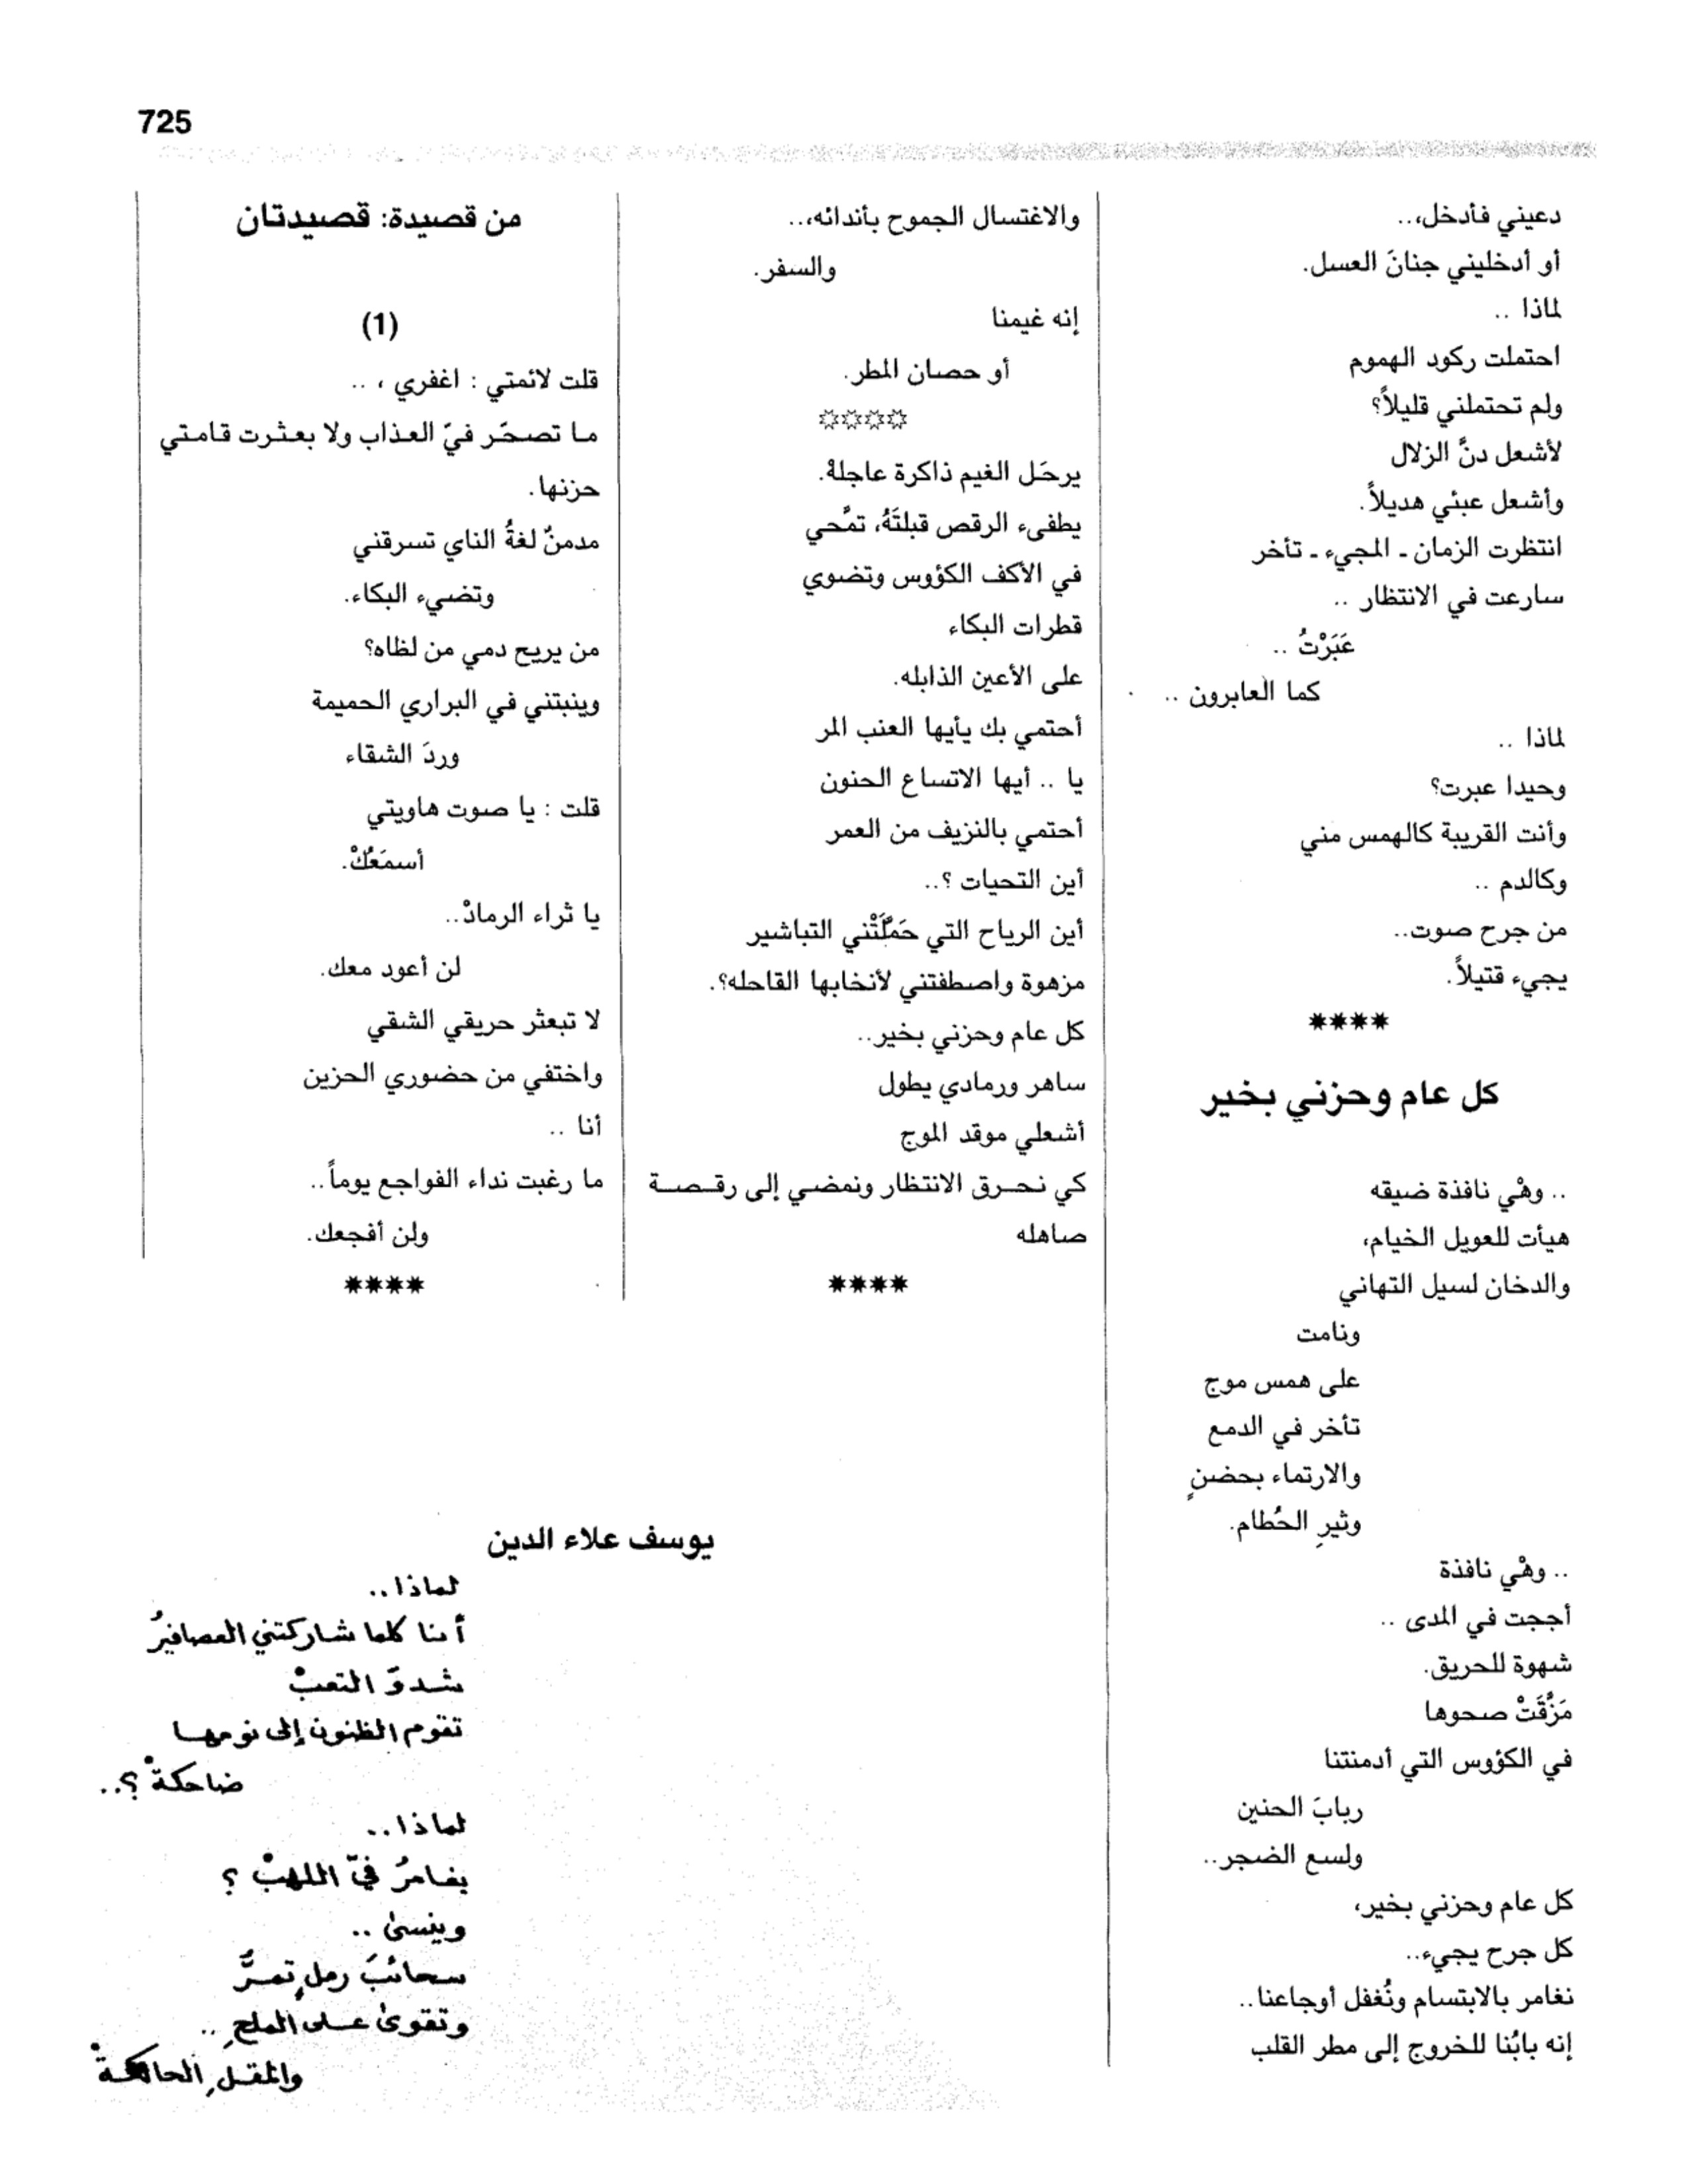 725
دعيني فأدخل،..
أو أدخليني جنانَ العسل.
لماذا ..
احتملت ركود الهموم
ولم تحتملني قليلاً؟
لأشعل دنَّ الزلال
وأشعل عبئي هديلاً.
انتظرت الزمان ـ المجيء ـ تأخر
سارعت في الانتظار ..
عَبَرْتُ ..
كما العابرون ..
لماذا ..
وحيدا عبرت؟
وأنت القريبة كالهمس مني
وكالدم ..
من جرح صوت..
يجيء قتيلاً.
****
كل عام وحزني بخير
.. وهْي نافذة ضيقه
هيأت للعويل الخيام،
والدخان لسيل التهاني
ونامت
على همس موج
تأخر في الدمع
والارتماء بحضنٍ
وثيرِ الحُطام.
.. وهْي نافذة
أججت في المدى ..
شهوة للحريق.
مَزَّقَتْ صحوها
في الكؤوس التي أدمنتنا
ربابَ الحنين
ولسع الضجر..
كل عام وحزني بخير،
كل جرح يجيء..
نغامر بالابتسام ونُغفل أوجاعنا..
إنه بابُنا للخروج إلى مطر القلب
والاغتسال الجموح بأندائه،..
والسفر.
إنه غيمنا
أو حصان المطر.
****
يرحَل الغيم ذاكرة عاجلهْ.
يطفىء الرقص قبلتَهُ، تمَّحي
في الأكف الكؤوس وتضوي
قطرات البكاء
على الأعين الذابله.
أحتمي بك يأيها العنب المر
يا .. أيها الاتساع الحنون
أحتمي بالنزيف من العمر
أين التحيات ؟..
أين الرياح التي حَمَّلَتْني التباشير
مزهوة واصطفتني لأنخابها القاحله؟.
كل عام وحزني بخير..
ساهر ورمادي يطول
أشعلي موقد الموج
كي نحرق الانتظار ونمضي إلى رقصة
صاهله
****
من قصيدة: قصيدتان
(1)
قلت لائمتي : اغفري ، ..
ما تصحّر فيّ العذاب ولا بعثرت قامتي
حزنها.
مدمنٌ لغةُ الناي تسرقني
وتضيء البكاء.
من يريح دمي من لظاه؟
وينبتني في البراري الحميمة
وردَ الشقاء
قلت : يا صوت هاويتي
أسمَعُكْ.
يا ثراء الرمادْ..
لن أعود معك.
لا تبعثر حريقي الشقي
واختفي من حضوري الحزين
أنا ..
ما رغبت نداء الفواجع يوماً..
ولن أفجعك.
****
يوسف علاء الدين
لماذا..
أنا كلما شاركتني العصافيرُ
شدوَ التعبْ
تقوم الظنون إلى نومها
ضاحكةْ ؟..
لماذا..
يغامرُ فيّ اللهبْ ؟
وينسىٰ ..
سحائبَ رملٍ تمرُّ
وتقوىٰ على الملحِ ..
والمقلِ الحالكةْ